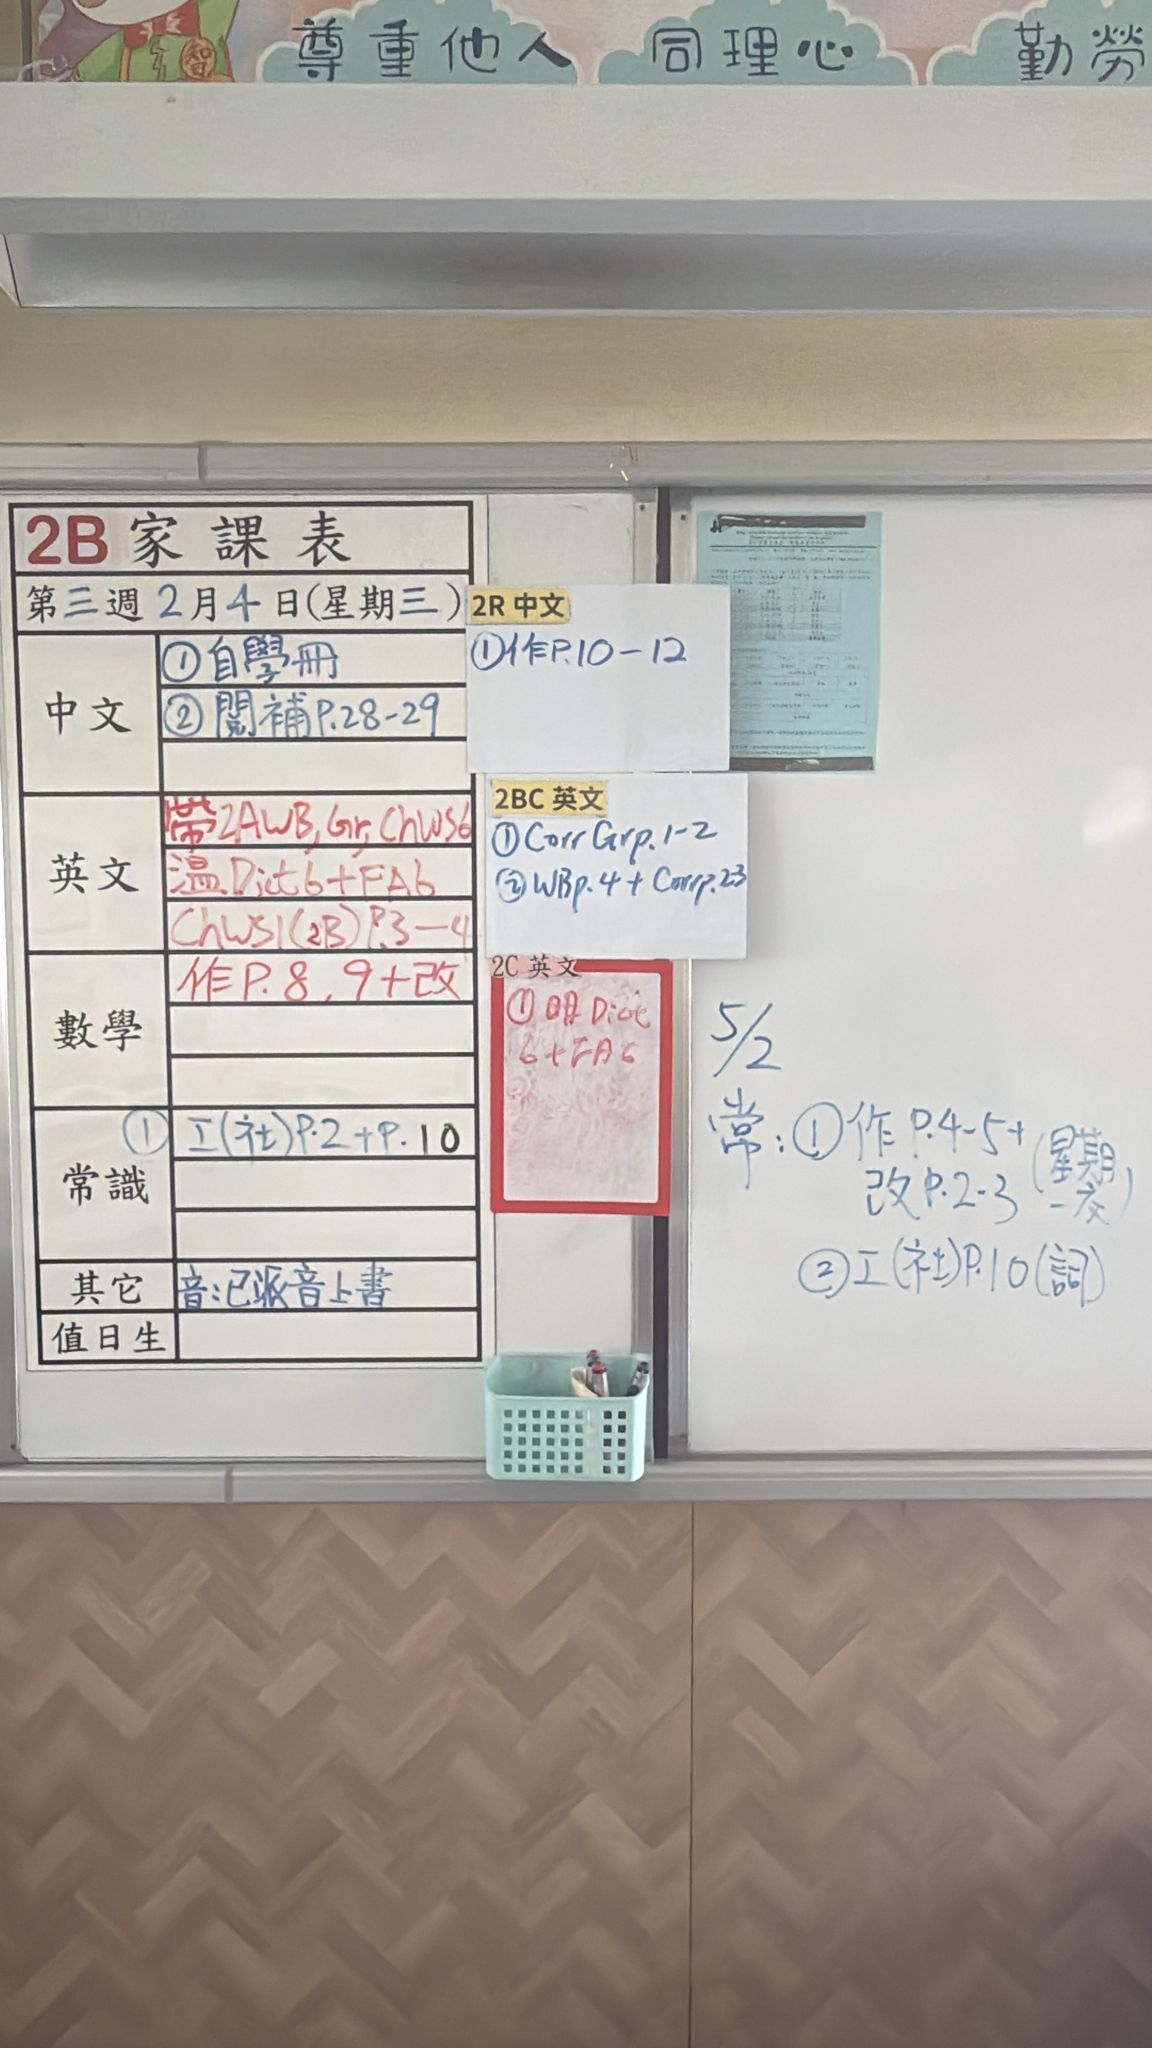 尊重他人 同理心 勤勞
智
2B 家課表
第三週2月4日(星期三)
中文
①自學冊
②閱補P.28-29
英文
帶2AWB, Gr, ChWS6
溫Dict6+FA6
ChWS1(2B)P.3-4
數學
作P.8, 9+改
常識
①工(社)P.2+P.10
其它
音:已派音上書
值日生
2R 中文
①作P.10-12
2BC 英文
①Corr Grp.1-2
②WBp.4+Corrp.23
2C 英文
① Dict
6+FA6
5/2
常:①作P.4-5+
改P.2-3(星期一交)
②工(社)P.10(詞)